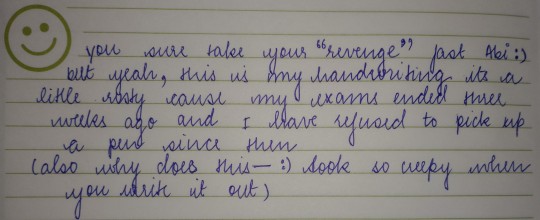 you sure take your "revenge" fast Abi :)
but yeah, this is my handwriting its a
little rosty cause my exams ended three
weeks ago and I have refused to pick up
a pen since then
(also why does this— :) look so creepy when
you write it out)